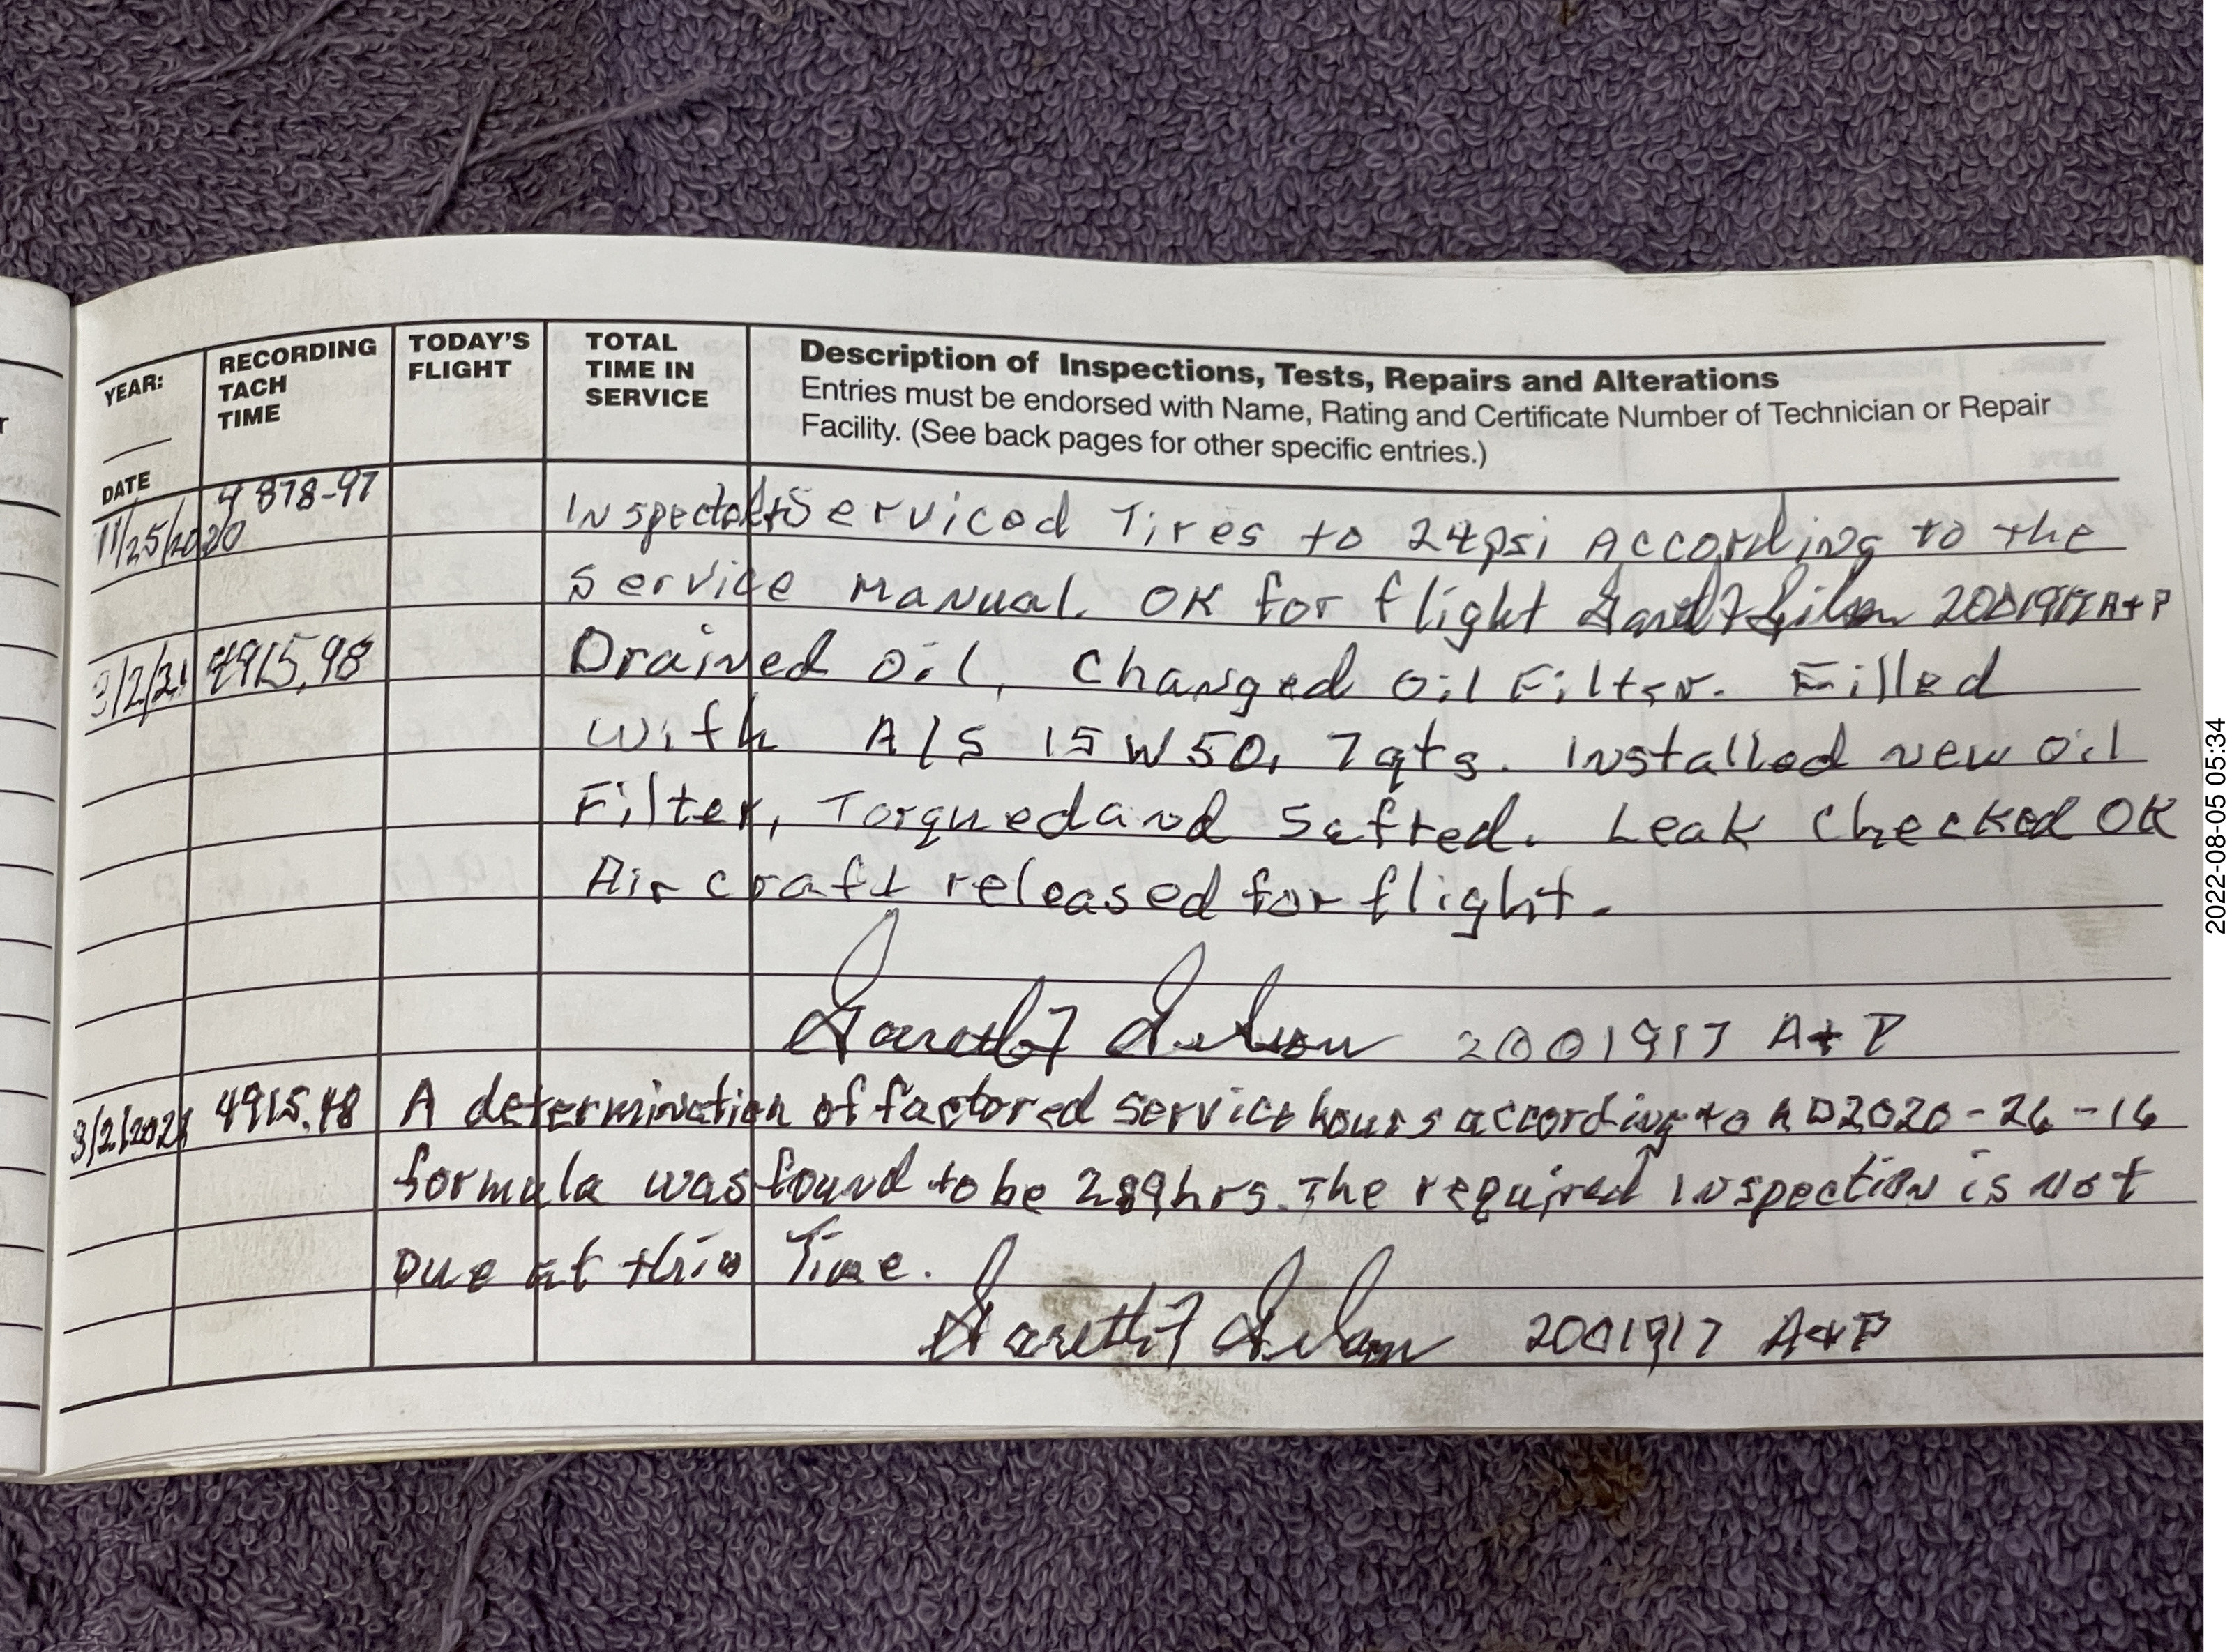 YEAR:
DATE
RECORDING
TACH
TIME
TODAY'S
FLIGHT
TOTAL
TIME IN
SERVICE
Description of Inspections, Tests, Repairs and Alterations
Entries must be endorsed with Name, Rating and Certificate Number of Technician or Repair
Facility. (See back pages for other specific entries.)
11/25/2020 4878-97 Inspected + Serviced Tires to 24psi According to the
Service Manual. OK for flight 2001917 A+P
3/2/21 4915.98 Drained oil, Changed oil Filter. Filled
with A/S 15W50, 7qts. Installed new oil
Filter, Torqued and Safted. Leak Checked OK
Aircraft released for flight.
2001917 A+P
3/2/2021 4915.98 A determination of factored service hours according to AD2020-26-16
formula was found to be 289hrs. The required inspection is not
Due at this Time.
2001917 A+P
2022-08-05 05:34